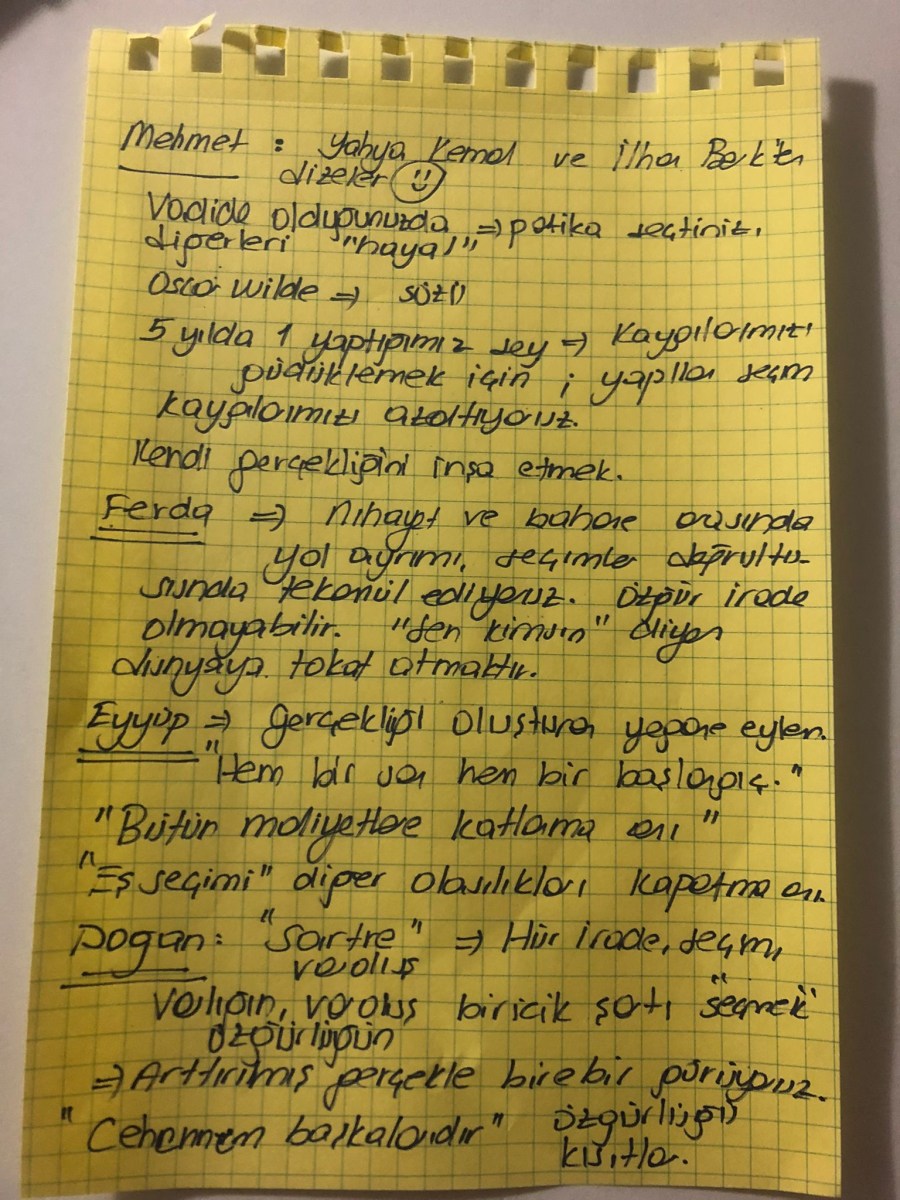 Mehmet : Yahya Kemal ve İlhan Berk'ten
dizeler
Vadide olduğunuzda ⇒ patika seçtiniz,
diğerleri "hayal"
Oscar Wilde ⇒ sözü
5 yılda 1 yaptığımız şey ⇒ Kaygılarımızı
güdüklemek için ; yapılan seçim
kaygılarımızı azaltıyoruz.
Kendi gerçekliğini inşa etmek.
Ferda ⇒ Nihayet ve bahane arasında
yol ayrımı, seçimler doğrultu-
sunda tekamül ediyoruz. Özgür irade
olmayabilir. "Sen kimsin" diyen
dünyaya tokat atmaktır.
Eyyüp ⇒ Gerçekliği oluşturan yegane eylem.
"Hem bir son hem bir başlangıç."
"Bütün maliyetlere katlanma anı"
"Eş seçimi" diğer olasılıkları kapatma anı.
Dogan : "Sartre" ⇒ Hür irade, seçim,
varoluş
Varlığın, varoluş biricik şartı "seçmek"
özgürlüğün
⇒ Arttırılmış gerçekle birebir görüyoruz.
"Cehennem başkalarıdır" özgürlüğü
kısıtlar.